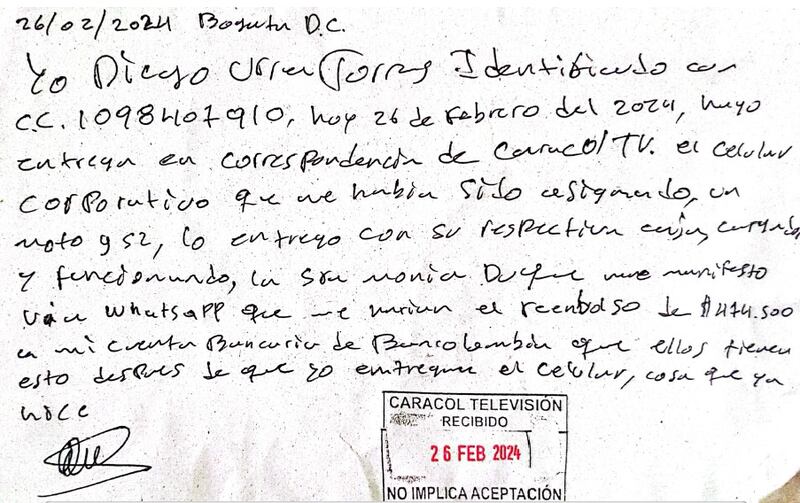 26/02/2024 Bogota D.C.
Yo Diego Urrea Torres Identificado con
C.C. 1098407910, hoy 26 de Febrero del 2024, hago
entrega en correspondencia de Caracol TV. el celular
corporativo que me habia sido asignado, un
moto g 52, lo entrego con su respectiva caja, cargador
y funcionando, la sra monica Duque me manifesto
via Whatsapp que me harian el reenbolso de $474.500
a mi cuenta Bancaria de Bancolombia que ellos tienen
esto despues de que yo entregara el celular, cosa que ya
hice
CARACOL TELEVISIÓN
RECIBIDO
26 FEB 2024
NO IMPLICA ACEPTACIÓN